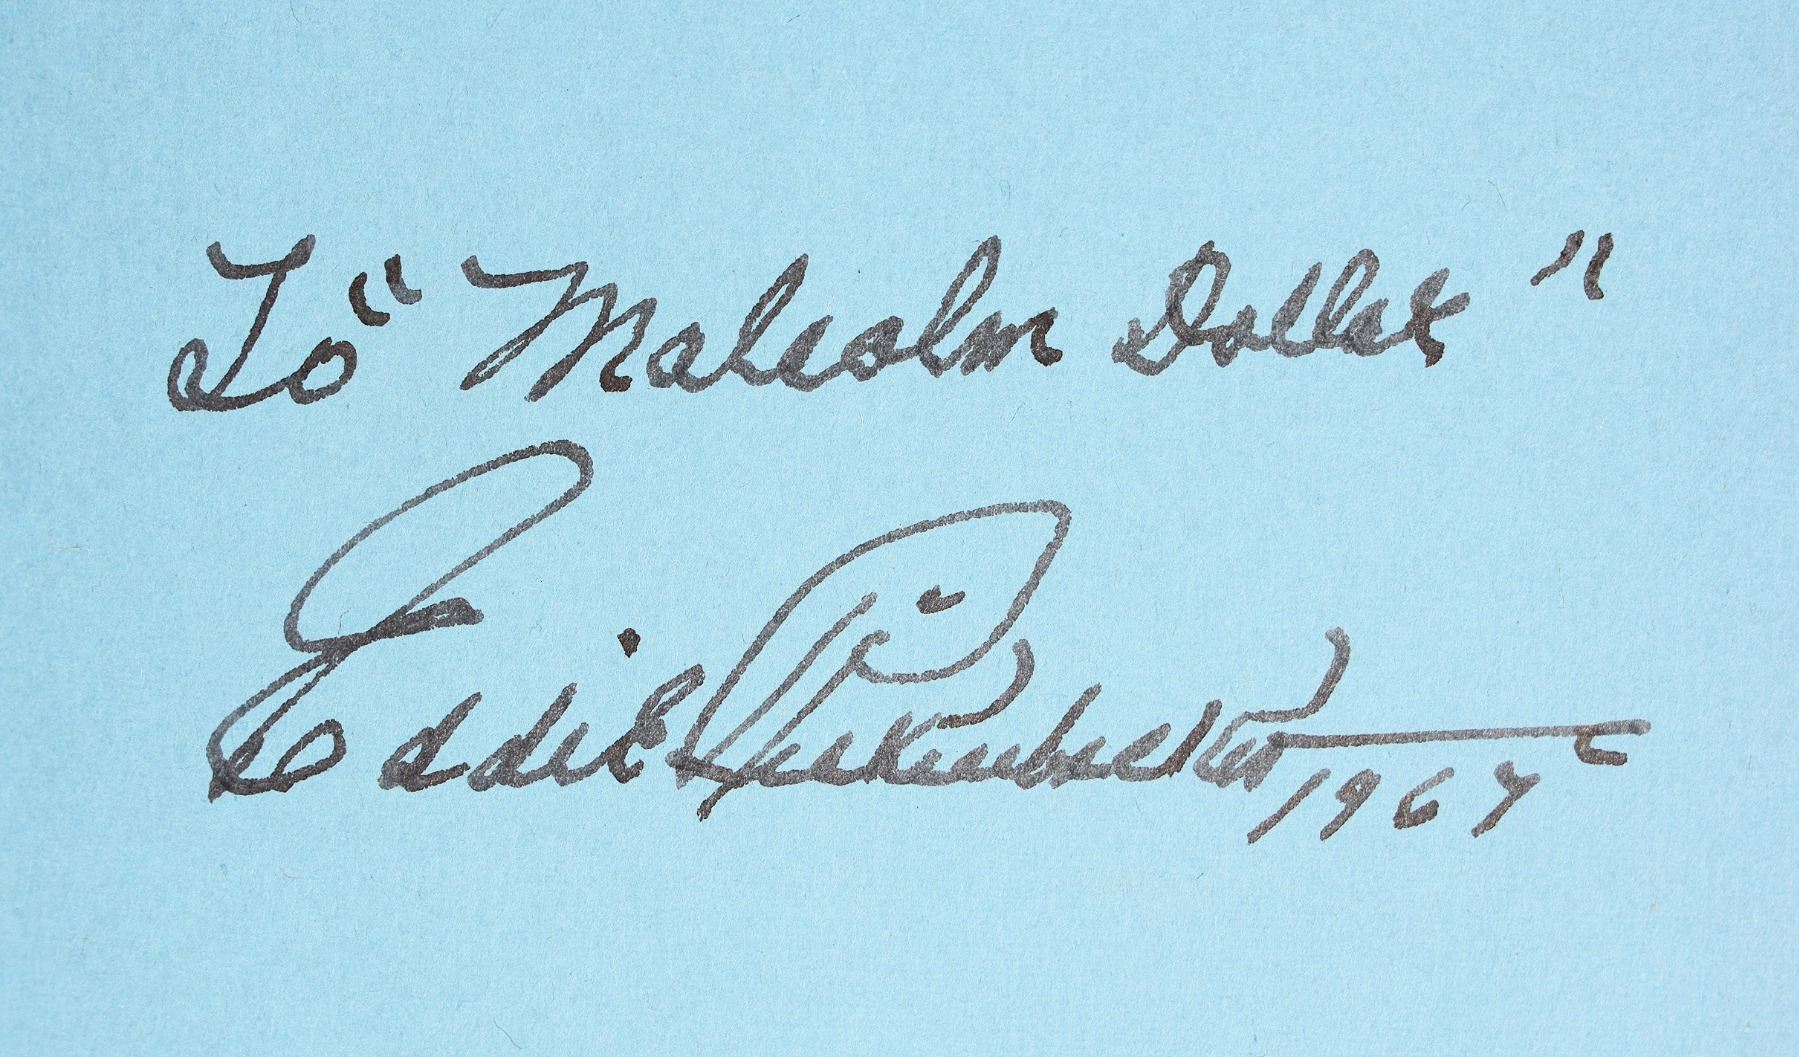 To "Malcolm Dollar"
Eddie Rickenbacker
1967